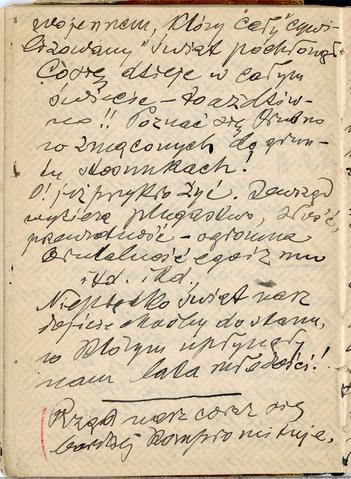 wojennem, który cały "cywi-
lizowany" świat pochłonął.
Co się dzieje w całym
świecie – to aż dziw-
ne!! Poznać się trudno
w zmąconych do grun-
tu stosunkach!
O! już przykro żyć. Zewsząd
wyziera plugastwo, złość,
przewrotność – ogromna
brutalność egoizmu
itd. itd.
Nieprędko świat nasz
dojdzie choćby do stanu,
w którym upłynęły
nam lata młodości!
Rząd nasz coraz się
bardziej kompromituje.